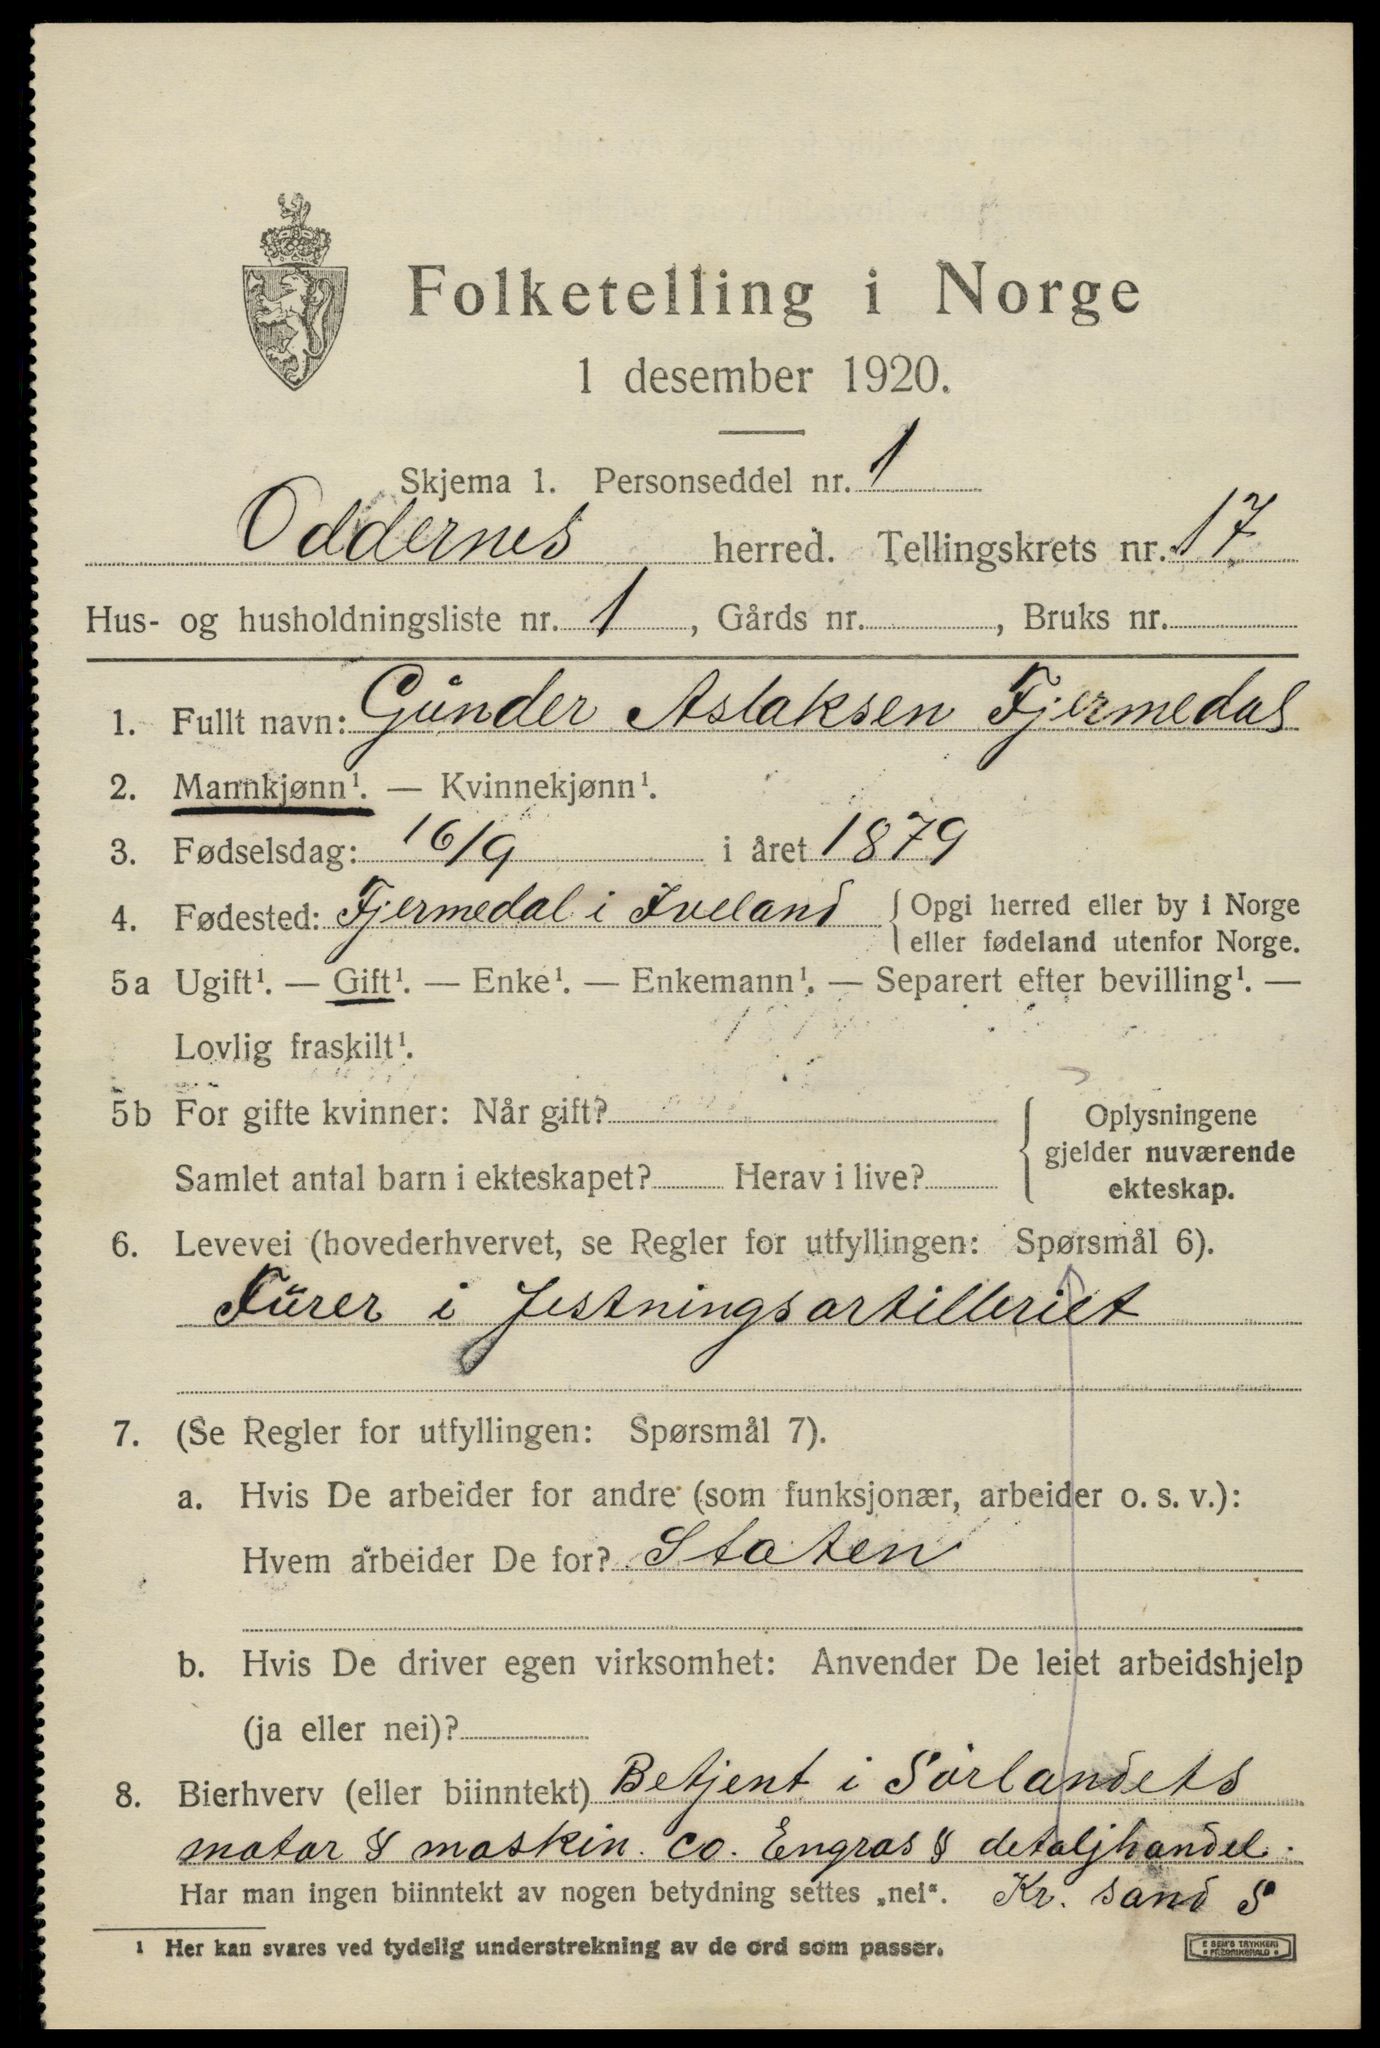 Folketelling i Norge
1 desember 1920.
Skjema 1. Personseddel nr. 1
Oddernes herred. Tellingskrets nr. 17
Hus- og husholdningsliste nr. 1, Gårds nr. , Bruks nr.
1. Fullt navn: Gunder Aslaksen Fjermedal
2. Mannkjønn¹. — Kvinnekjønn¹.
3. Fødselsdag: 16/9 i året 1879
4. Fødested: Fjermedal i Iveland { Opgi herred eller by i Norge
eller fødeland utenfor Norge.
5a Ugift¹. — Gift¹. — Enke¹. — Enkemann¹. — Separert efter bevilling¹. —
Lovlig fraskilt¹.
5b For gifte kvinner: Når gift?
Samlet antal barn i ekteskapet? Herav i live?
{ Oplysningene
gjelder nuværende
ekteskap.
6. Levevei (hovederhvervet, se Regler for utfyllingen: Spørsmål 6).
Fürer i festningsartilleriet
7. (Se Regler for utfyllingen: Spørsmål 7).
a. Hvis De arbeider for andre (som funksjonær, arbeider o. s. v.):
Hvem arbeider De for? Staten
b. Hvis De driver egen virksomhet: Anvender De leiet arbeidshjelp
(ja eller nei)?
8. Bierhverv (eller biinntekt) Betjent i Sørlandets
motor & maskin. co. Engros & detaljhandel.
Har man ingen biinntekt av nogen betydning settes „nei“. Kr. sand S
¹ Her kan svares ved tydelig understrekning av de ord som passer.
E SEM'S TRYKKERI
FREDRIKSHALD